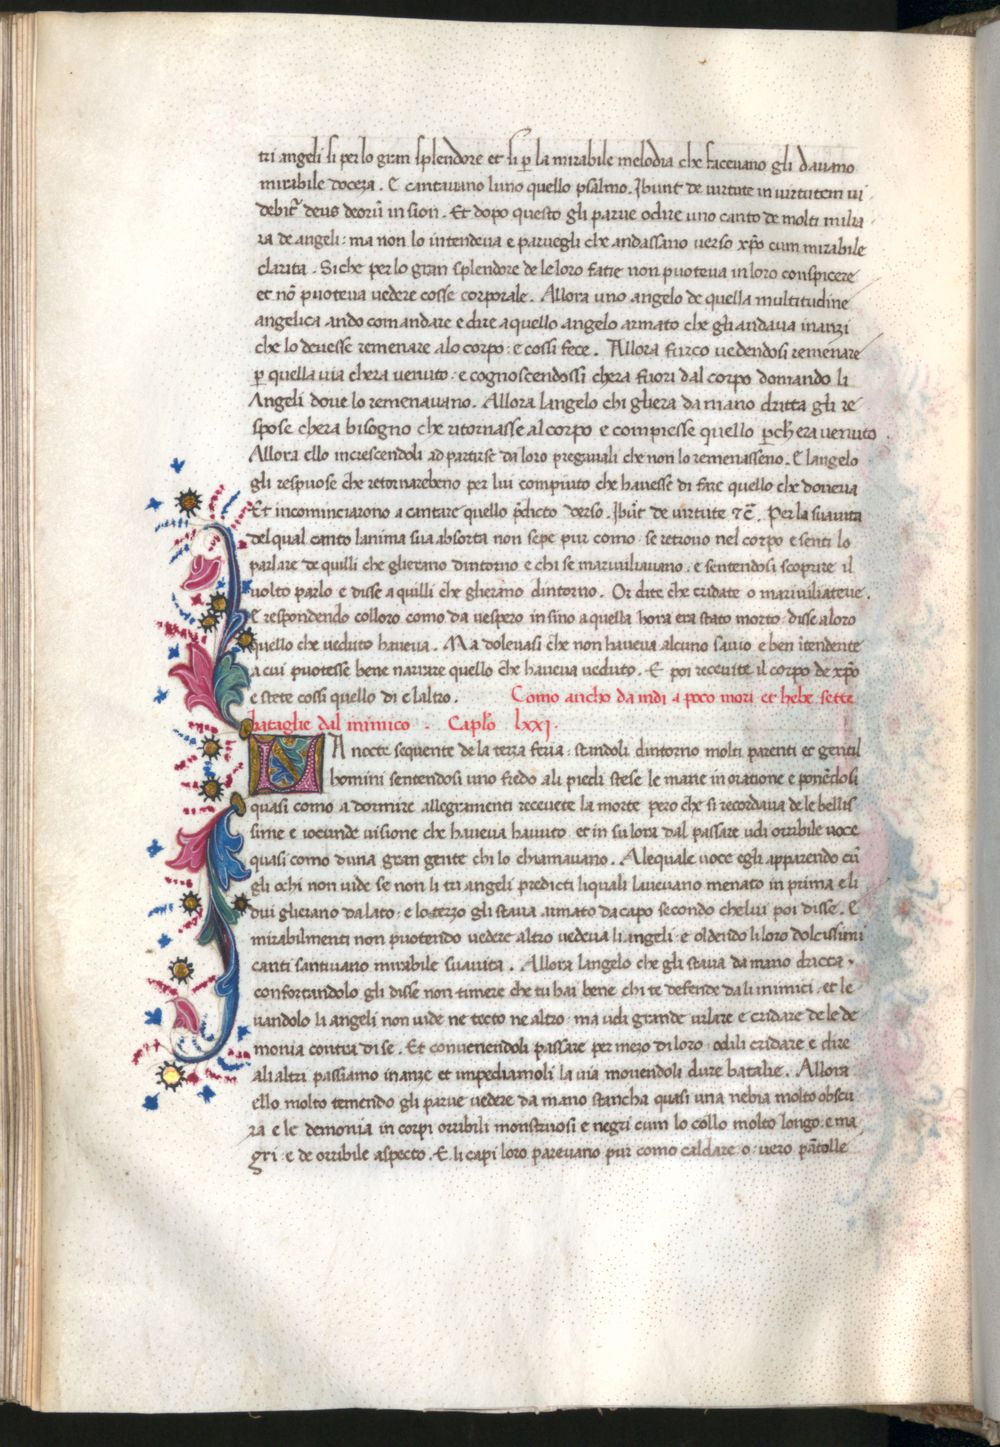 tri angeli si per lo gran splendore et si p̱ la mirabile melodia che facevano gli davano
mirabile doceza. E cantavano luno quello psalmo. Ibunt de virtute in virtutem vi
debit᷑ deus deorū in sion. Et dopo questo gli parve odire uno canto de molti milia
ra de angeli: ma non lo intendeva e parvegli che andassano verso xp̄o cum mirabile
clarita. Siche per lo gran splendore de le loro fatie non puoteva in loro conspicere
et nō puoteva vedere cosse corporale. Allora uno angelo de quella multitudine
angelica ando comandare e dire a quello angelo armato che gli andava inanzi
che lo devesse remenare alo corpo: e cossi fece. Allora furco vedendosi remenare
p̱ quella via chera venuto: e cognoscendossi chera fuori dal corpo domando li
Angeli dove lo remenavano. Allora langelo chi ghera da mano dritta gli re
spose chera bisogno che ritornasse al corpo e compiesse quello p̱ch era venuto
Allora ello increscendoli ad partirse da loro pregavali che non lo remenasseno. E langelo
gli respuose che retornarebeno per lui compiuto che havesse di fare quello che doveva
Et incominciarono a cantare quello p̄dicto verso. Ibūt de virtute ⁊c̄. Per la suavita
del qual canto lanima sua absorta non sepe pur como se retrovo nel corpo e senti lo
parlare de quilli che glierano dintorno e chi se maraviliavano: e sentendosi scoprire il
volto parlo e disse a quilli che gherano dintorno. Or dite che cridate o maraviliateve.
E respondendo colloro como da vespero in sino a quella hora era stato morto: disse a loro
quello che veduto haveva. Ma dolevasi che non haveva alcuno savio e ben ītendente
a cui puotesse bene narrare quello che haveva veduto. E poi recevite il corpo de xp̄o
e stete cossi quello di e laltro. Como ancho da indi a poco mori et hebe sette
bataglie dal inimico. Caplo lxxj.
LA nocte sequente de la terza feria: standoli dintorno molti parenti et gentil
homini sentendosi uno fredo ali piedi stese le mane in oratione e ponēdosi
quasi como a dormire allegramenti recevete la morte pero che si recordava de le bellis
sime e iocunde visione che haveva havuto et in su lora dal passare udi orribile voce
quasi como duna gran gente chi lo chiamavano. Ale quale voce egli apparendo cū
gli ochi non vide se non li tri angeli predicti li quali lavevano menato in prima e li
dui glierano da lato: e lo terzo gli stava armato da capo secondo chelui poi disse. E
mirabilmenti non puotendo vedere altro vedeva li angeli e oldendo li loro dolcissimi
canti santivano mirabile suavita. Allora langelo che gli stava da mano dricta
confortandolo gli disse non timere che tu hai bene chi te defende da li inimici: et le
vandolo li angeli non vide ne tecto ne altro: ma udi grande urlare e cridare de le de
monia contra di se. Et convenendoli passare per mezo di loro odili cridare e dire
ali altri passiamo inanze et impediamoli la via movendoli dure batalie. Allora
ello molto temendo gli parve vedere da mano stancha quasi una nebia molto obscu
ra e le demonia in corpi orribili monstruosi e negri cum lo collo molto longo: e ma
gri: e de orribile aspecto. E li capi loro parevano pur como caldare o vero pātolle